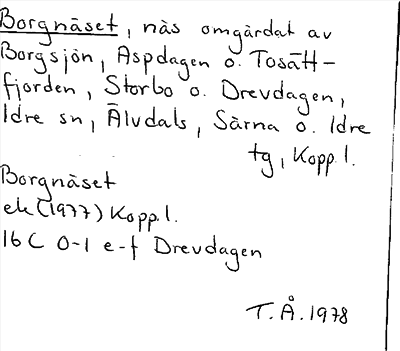 Borgnäset, näs omgärdat av
Borgsjön, Aspdagen o. Tosätt-
fjorden, Storbo o. Drevdagen,
Idre sn, Älvdals, Särna o. Idre
tg, Kopp.l.
Borgnäset
ek (1977) Kopp.l.
16 C 0-1 e-f Drevdagen
T.Å. 1978